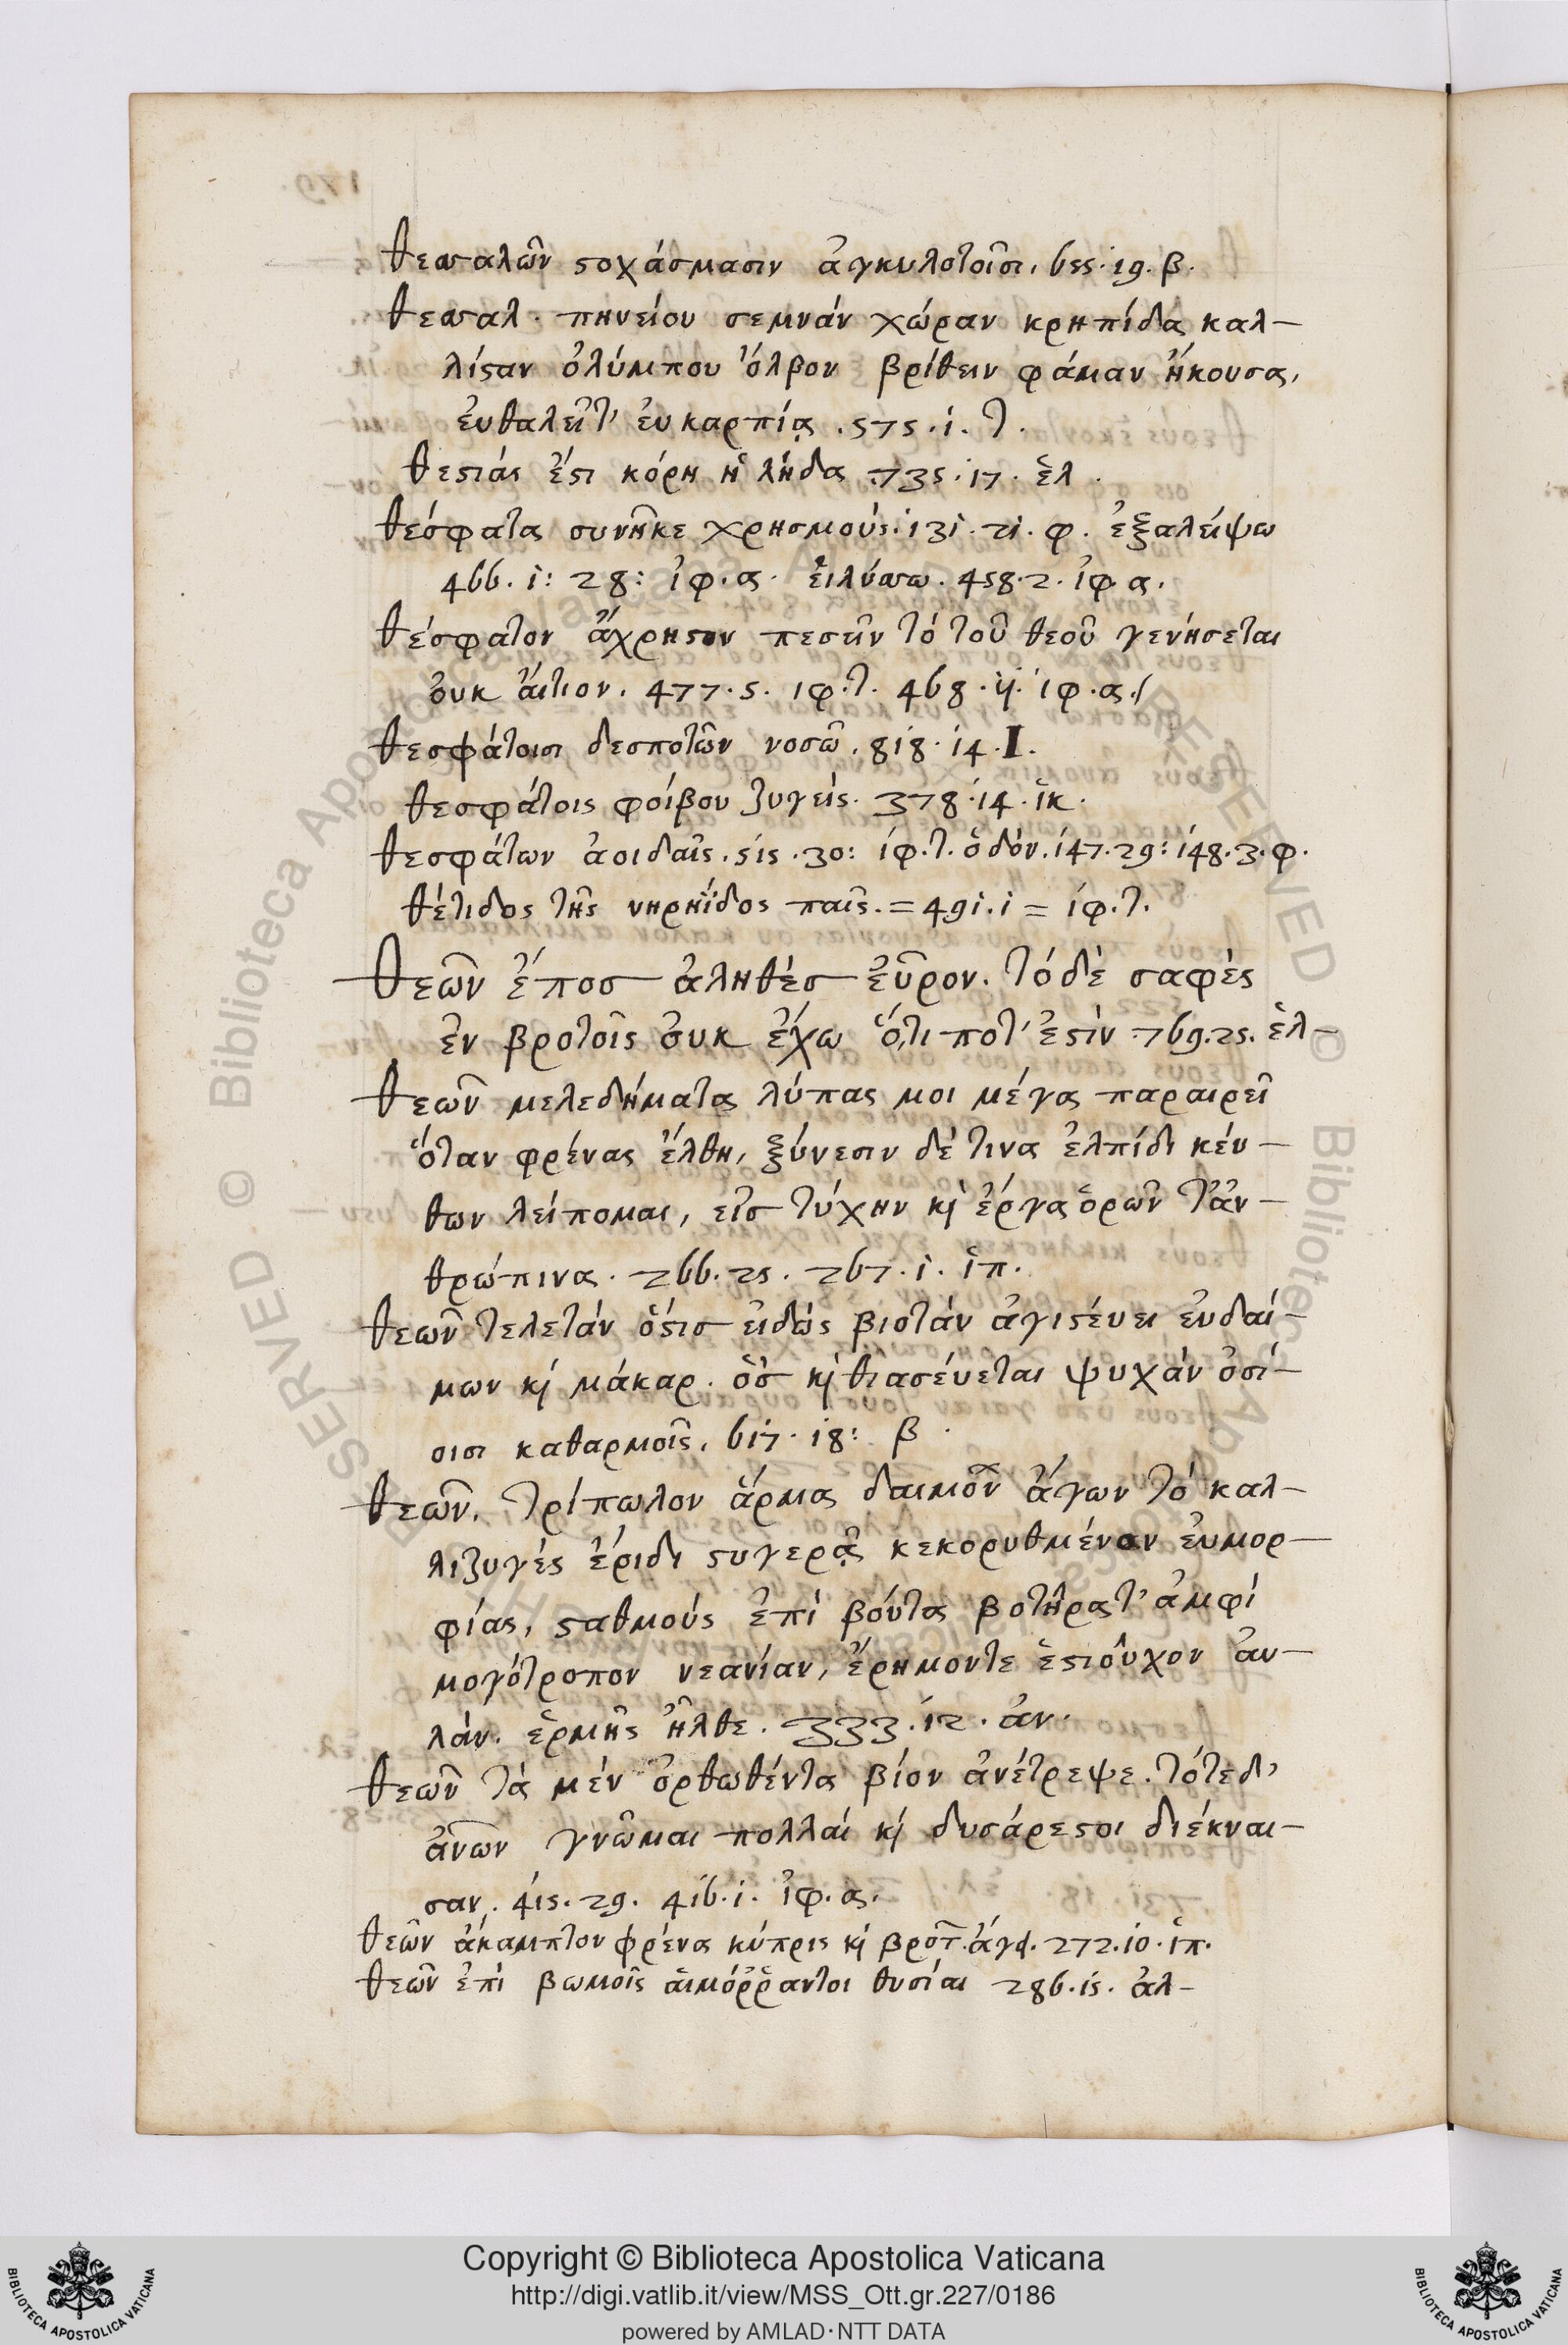 θεσσαλῶν στοχάσμασιν ἀγκυλοτοῖσι, 655. 19. β.
θεσσαλ. πηνείου σεμνάν χώραν κρηπίδα καλ–
λίσταν ὀλύμπου ὄλβον βρίθειν φάμαν ἤκουσα,
εὐθαλεῖτ' εὐκαρπίᾳ. 575. 1. τ.
θεστιάς ἔστι κόρη ἡ λήδα. 735. 17. ἑλ.
θέσφατα συνῆκε χρησμούς. 131. 21. φ. ἐξαλείψω
466. 1: 28: ἰφ. α. εἱλύσσω. 458. 2. ἰφ. α.
θέσφατον ἄχρηστον πεσεῖν τό τοῦ θεοῦ γενήσεται
οὐκ αἴτιον. 477. 5. ιφ. τ. 468. 11. ἰφ. α.
θεσφάτοισι δεσποτῶν νοσῶ. 818. 14. I.
θεσφάτοις φοίβου ζυγείς. 378. 14. ἱκ.
θεσφάτων ἀοιδαῖς. 515. 30: ἰφ. τ. ὁδόν. 147. 29: 148. 3. φ.
θέτιδος τῆς νηρηΐδος παῖς. = 491. 1 = ἰφ. τ.
θεῶν ἔπος ἀληθές εὗρον. τό δὲ σαφές
ἐν βροτοῖς οὐκ ἔχω ὅ,τι ποτ' ἐστὶν. 769. 25. ἑλ–
θεῶν μελεδήματα λύπας μοι μέγα παραιρεῖ
ὅταν φρένας ἔλθη, ξύνεσιν δέ τινα ἐλπίδι κεύ–
θων λείπομαι, εἰς τύχην κὶ ἔργα ὁρῶν τἀν–
θρώπινα. 266. 25. 267. 1. ἱπ.
θεῶν τελετάν ὅστις εἰδώς βιοτάν ἁγιστεύει εὐδαί–
μων κὶ μάκαρ. ὃς κὶ θιασεύεται ψυχάν ὁσί–
οισι καθαρμοῖς. 617. 18: β.
θεῶν. τρίπωλον ἅρμα δαιμόν͂ ἄγων τό καλ–
λιζυγές ἔριδι στυγερᾷ κεκορυθμέναν εὐμορ–
φίας, σταθμούς ἐπί βούτα βοτῆρα τ' ἀμφί
μογότροπον νεανίαν, ἔρημον τε ἑστιοῦχον αὐ–
λάν. ἑρμῆς ἦλθε. 333. 12. ἀν.
θεῶν τὰ μέν ὀρθωθέντα βίον ἀνέτρεψε. τότε δ'
ἀν͞ων γνῶμαι πολλαί κὶ δυσάρεστοι διέκναι–
σαν. 415. 29. 416. 1. ἰφ. α.
θεῶν ἄκαμπτον φρένα κύπρις κὶ βρότ͂. 272. 10. ἱπ.
θεῶν ἐπὶ βωμοῖς αἱμόῤῥαντοι θυσίαι 286. 15. ἀλ–
Copyright © Biblioteca Apostolica Vaticana
http://digi.vatlib.it/view/MSS_Ott.gr.227/0186
powered by AMLAD·NTT DATA